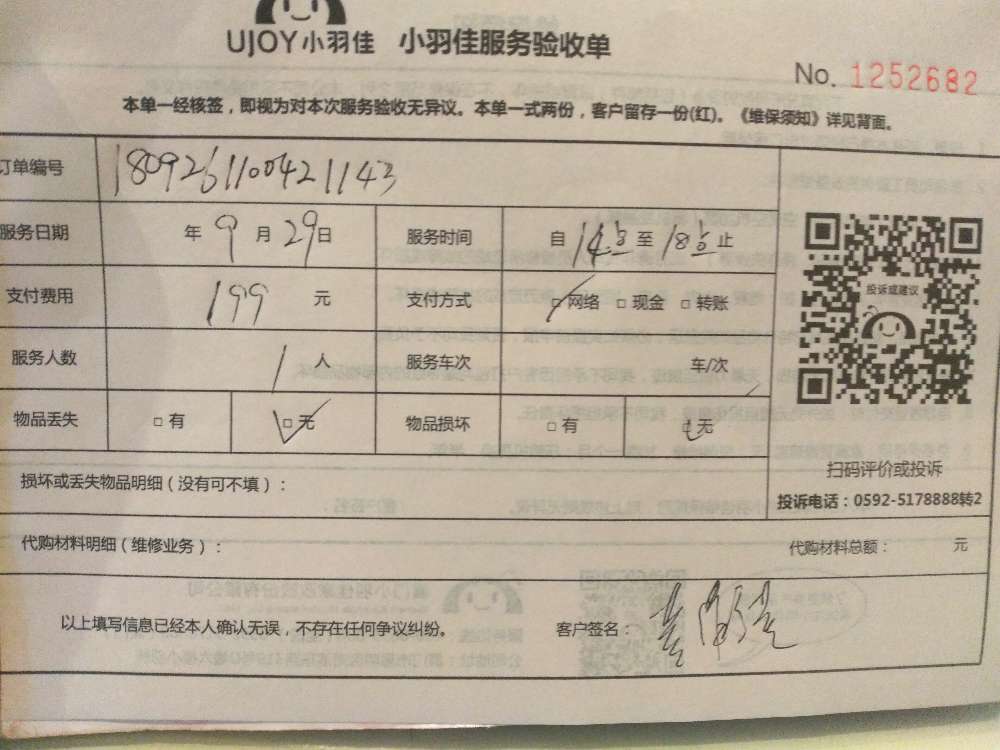 UJOY小羽佳 小羽佳服务验收单
No. 1252682
本单一经核签，即视为对本次服务验收无异议。本单一式两份，客户留存一份(红)。《维保须知》详见背面。
订单编号 1809261100421143
服务日期 年 9 月 29 日 服务时间 自 至 止
支付费用 199 元 支付方式 □网络 □现金 □转账
服务人数 1 人 服务车次 车/次
物品丢失 □有 □无 物品损坏 □有 □无
投诉或建议
扫码评价或投诉
投诉电话：0592-5178888转2
损坏或丢失物品明细（没有可不填）：
代购材料明细（维修业务）： 代购材料总额： 元
以上填写信息已经本人确认无误，不存在任何争议纠纷。 客户签名：